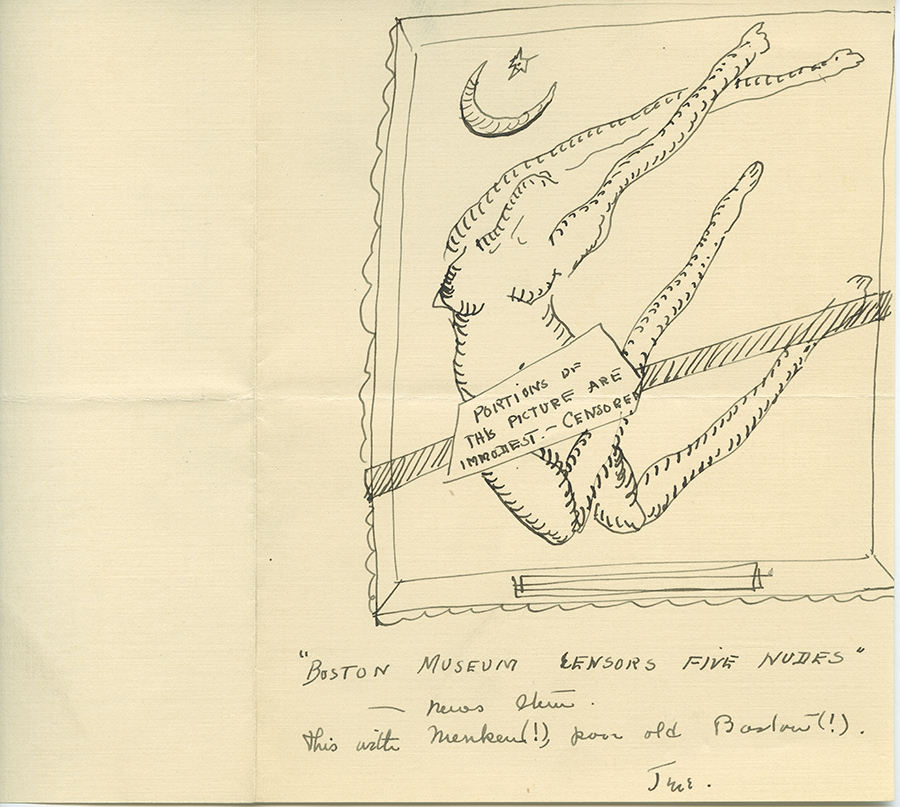 PORTIONS OF
THIS PICTURE ARE
IMMODEST. — CENSORED
"BOSTON MUSEUM CENSORS FIVE NUDES"
— news Item.
This with Menken(!), poor old Boston(!).